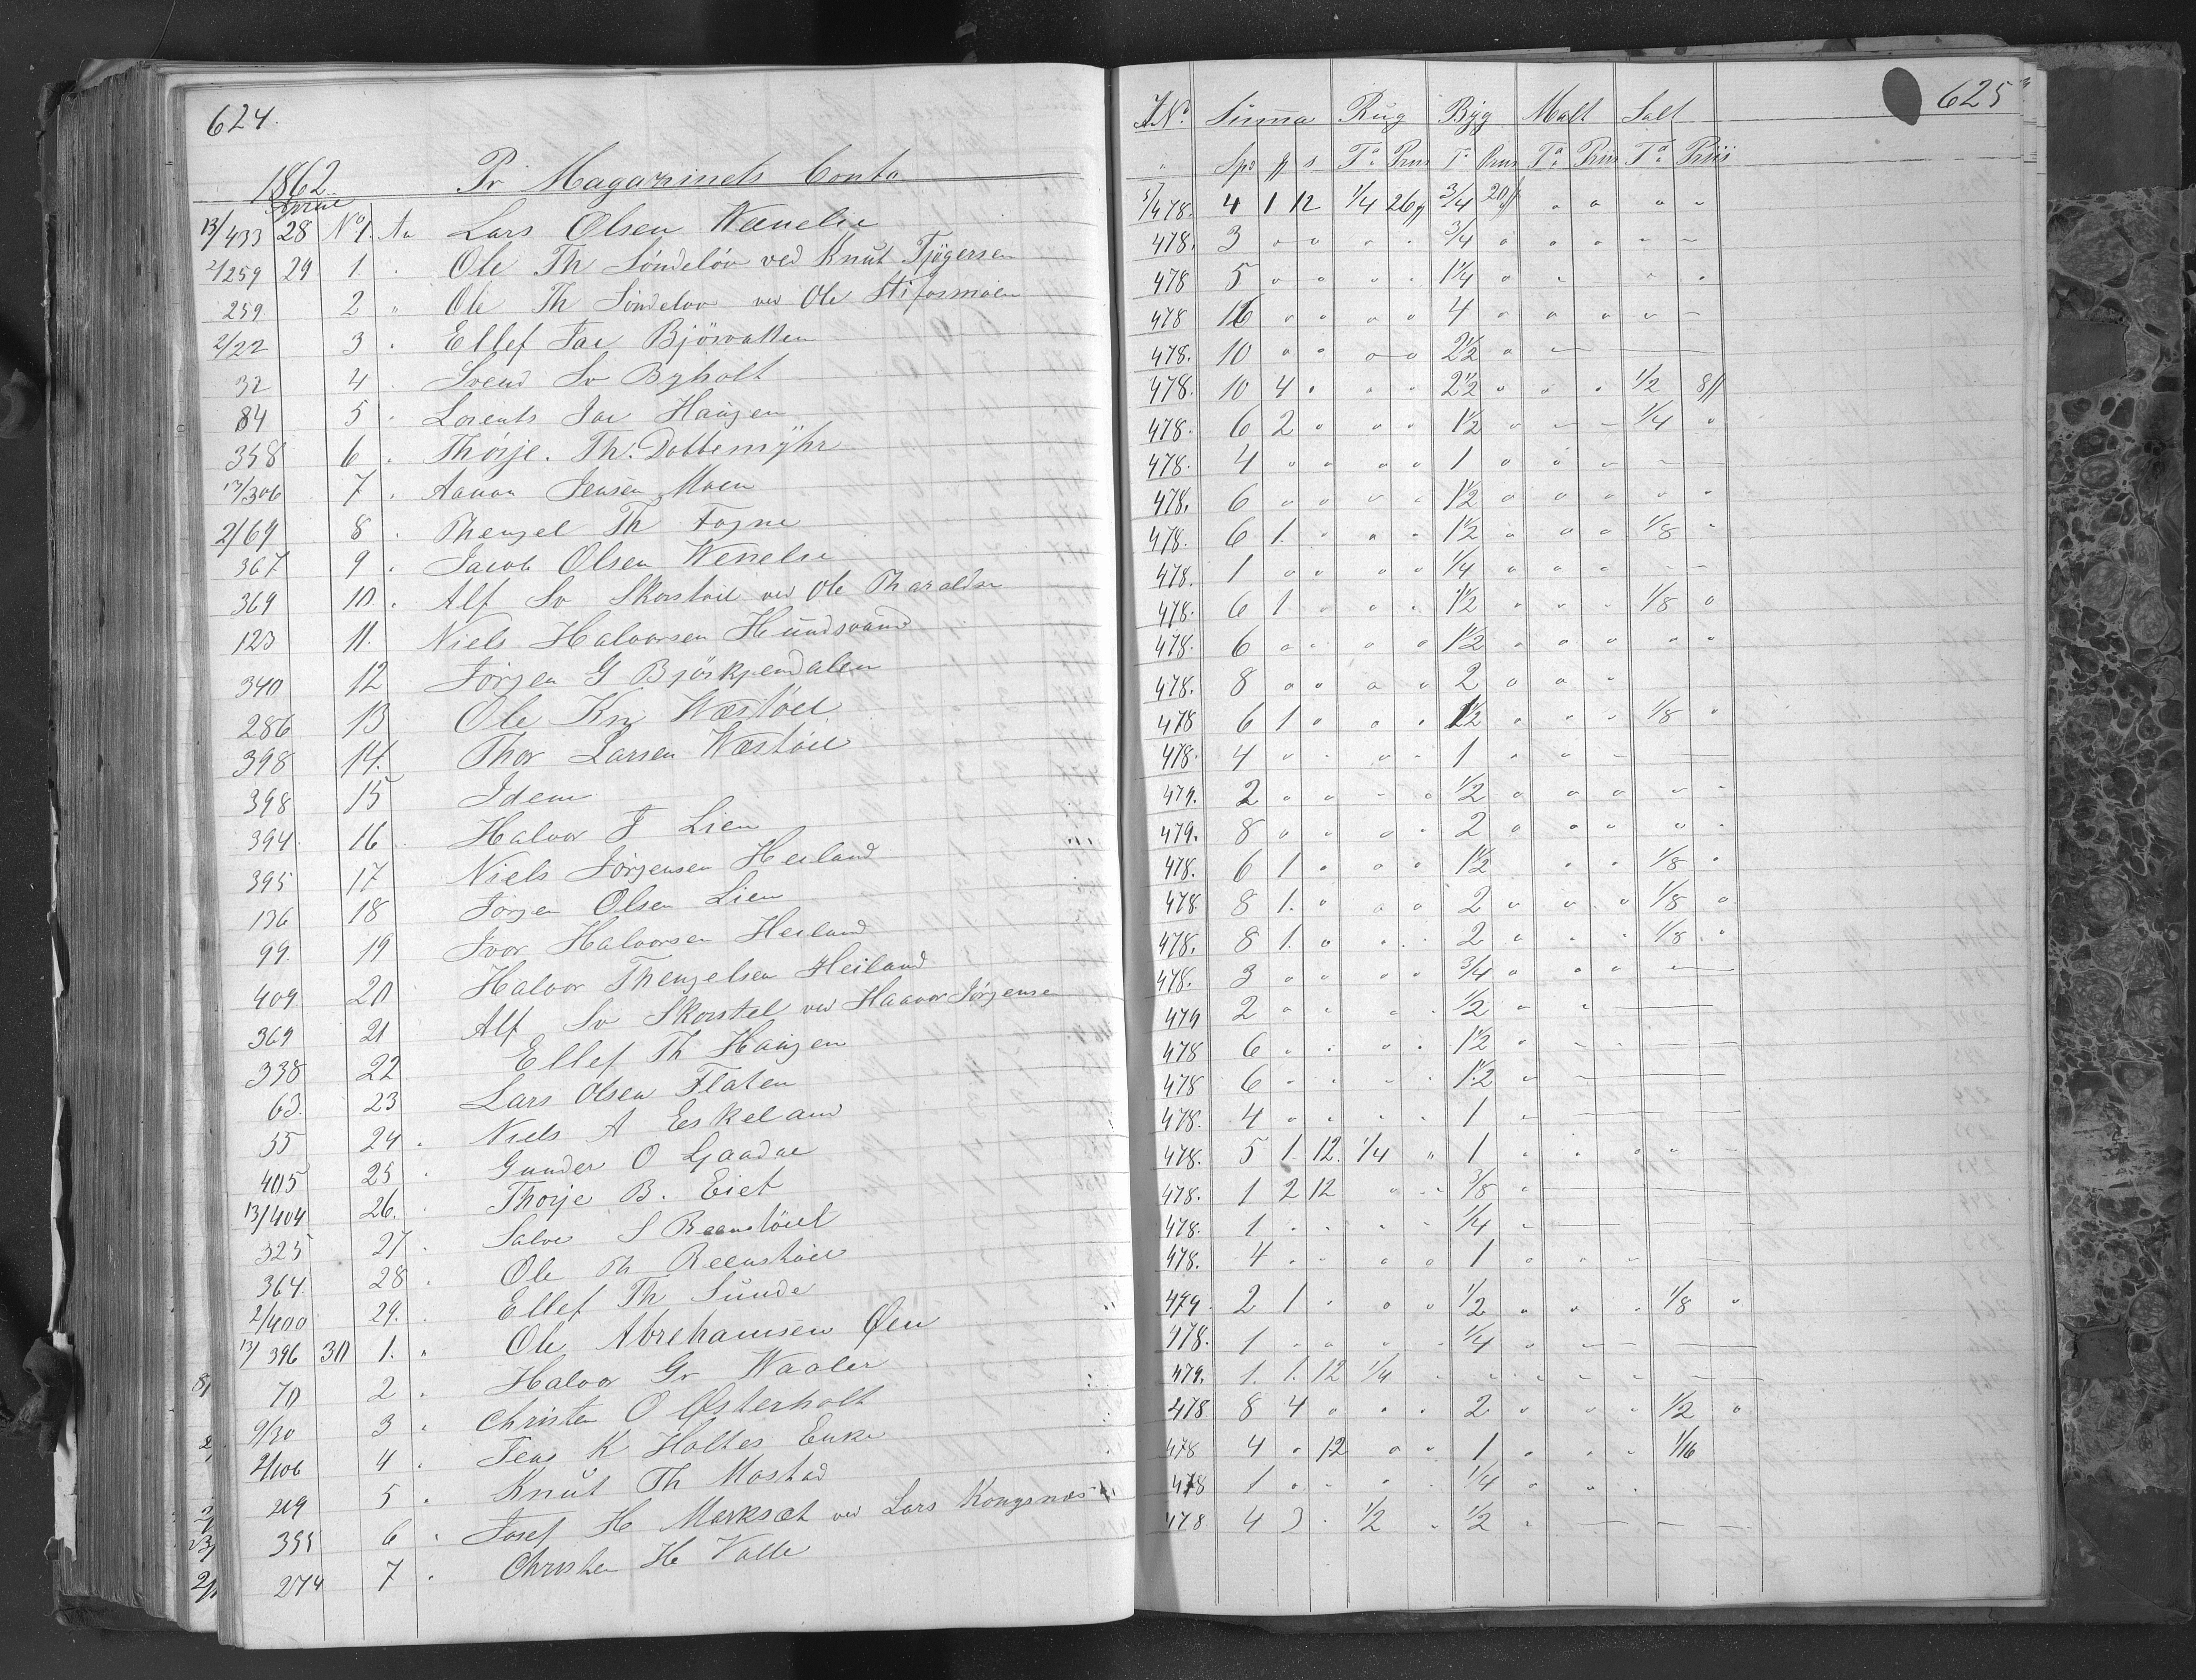 624.
1862. Pr Magazinets Conto
April
13/433 28 No 1. An Lars Olsen Wænelie
2/259 29 1. " Ole Th Söndelöv ved Knut Tjögersen
259 2 " Ole Th Söndeløv ved Ole Stifosmoen
2/22 3 " Ellef Jac Bjôrvatten
32 4 Svend Sv Byholt
84 5 " Lorents Jac Haugen
358 6 " Thorje. Th. Dobbemÿhr
13/306 7 " Aanon Jensen Moen
2/64 8 " Thengel Th Fogne
367 9 " Jacob Olsen Wenelie
369 10 " Alf Sv Skorstøil ved Ole Tharaldsen
123 11. Niels Halvorsen Hundsvand
340 12 Jörgen G Bjôrkjendalen
286 13 Ole Kn Wæstöel
398 14. Thor Larsen Wæstöel
398 15 Idem
394 16 Halvor J Lien
395 17 Niels Jörgensen Heiland
136 18 Jörgen Olsen Lien
99 19 Ivor Halvorsen Heiland
409 20 Halvor Thengelsen Heiland
369 21 Alf Sv Skorstel ved Haavor Jörgensen
338 22 Ellef Th Haugen
63. 23 Lars Olsen Flaten
55 24 " Niels A Eskeland
405 25 " Gunder O Gaadae
13/404 26. " Thorje B. Eiet
325 27 " Salve S Reenstöiel
364 28 " Ole Th Reenstöiel
2/400 29. " Ellef Th Sunde
13/396 30 1. " Ole Abrehamsen Øen
70 2 " Halvor Gr Waaler
9/30 3 " Christen O Østerholt
2/106 4 " Jens K Holtes Enke
219 5 " Knut Th Mostad
355 6 " Josef H Marksæt ved Lars Kongsnæs
274 7 " Christen H Valle
625
J No. Suma Rug Byg Malt Salt
" Spd ℔ s Ta Priis Ta Priis Ta Priis Ta Priis
5/478. 4 1 12 1/4 26 3/4 20 " " " "
478. 3 " " " " 3/4 " " " " "
478 5 " " " " 1 1/4 " " " "
478 16 " " " " 4 " " " " "
478. 10 " " " " 2 1/2 " "
478. 10 4 " " " 2 1/2 " " " 1/2 8
478. 6 2 " " " 1 1/2 " " " 1/4 "
478. 4 " " " " 1 " " " "
478. 6 " " " " 1 1/2 " " " " "
478. 6 1. " " " 1 1/2 " " " 1/8 "
478. 1 " " " " 1/4 " " " " "
478. 6 1 " " " 1 1/2 " " " 1/8 "
478. 6 " " " " 1 1/2 " " " " "
478. 8 " " " " 2 " " "
478 6 1 " " " 1 1/2 " " " 1/8 "
478. 4 " " " " 1 " " "
479. 2 " " " " 1/2 " " " " "
479. 8 " " " " 2 " " " " "
478. 6 1 " " " 1 1/2 " " 1/8 "
478 8 1. " " " 2 " " " 1/8 "
478. 8 1. " " " 2 " " " 1/8 "
478. 3 " " " " 3/4 " " "
479 2 " " " " 1/2 " "
478 6 " " " " 1 1/2 " "
478 6 " " " " 1 1/2 "
478. 4 " " " " 1 "
478. 5 1 12. 1/4 " 1 " " " " "
478. 1 2 12 " " 3/8 "
478. 1 " " " " 1/4 "
478. 4 " " " " 1 " " " "
479. 2 1 " " " 1/2 " " " 1/8 "
478. 1 " " " " 1/4 "
479. 1. 1. 12 1/4 " " " " " "
478 8 4 " " " 2 " " " 1/2 "
478 4 " 12 " " 1 " " " 1/16
478 1 " " " 1/4 " " "
478 4 3 " 1/2 " 1/2 "